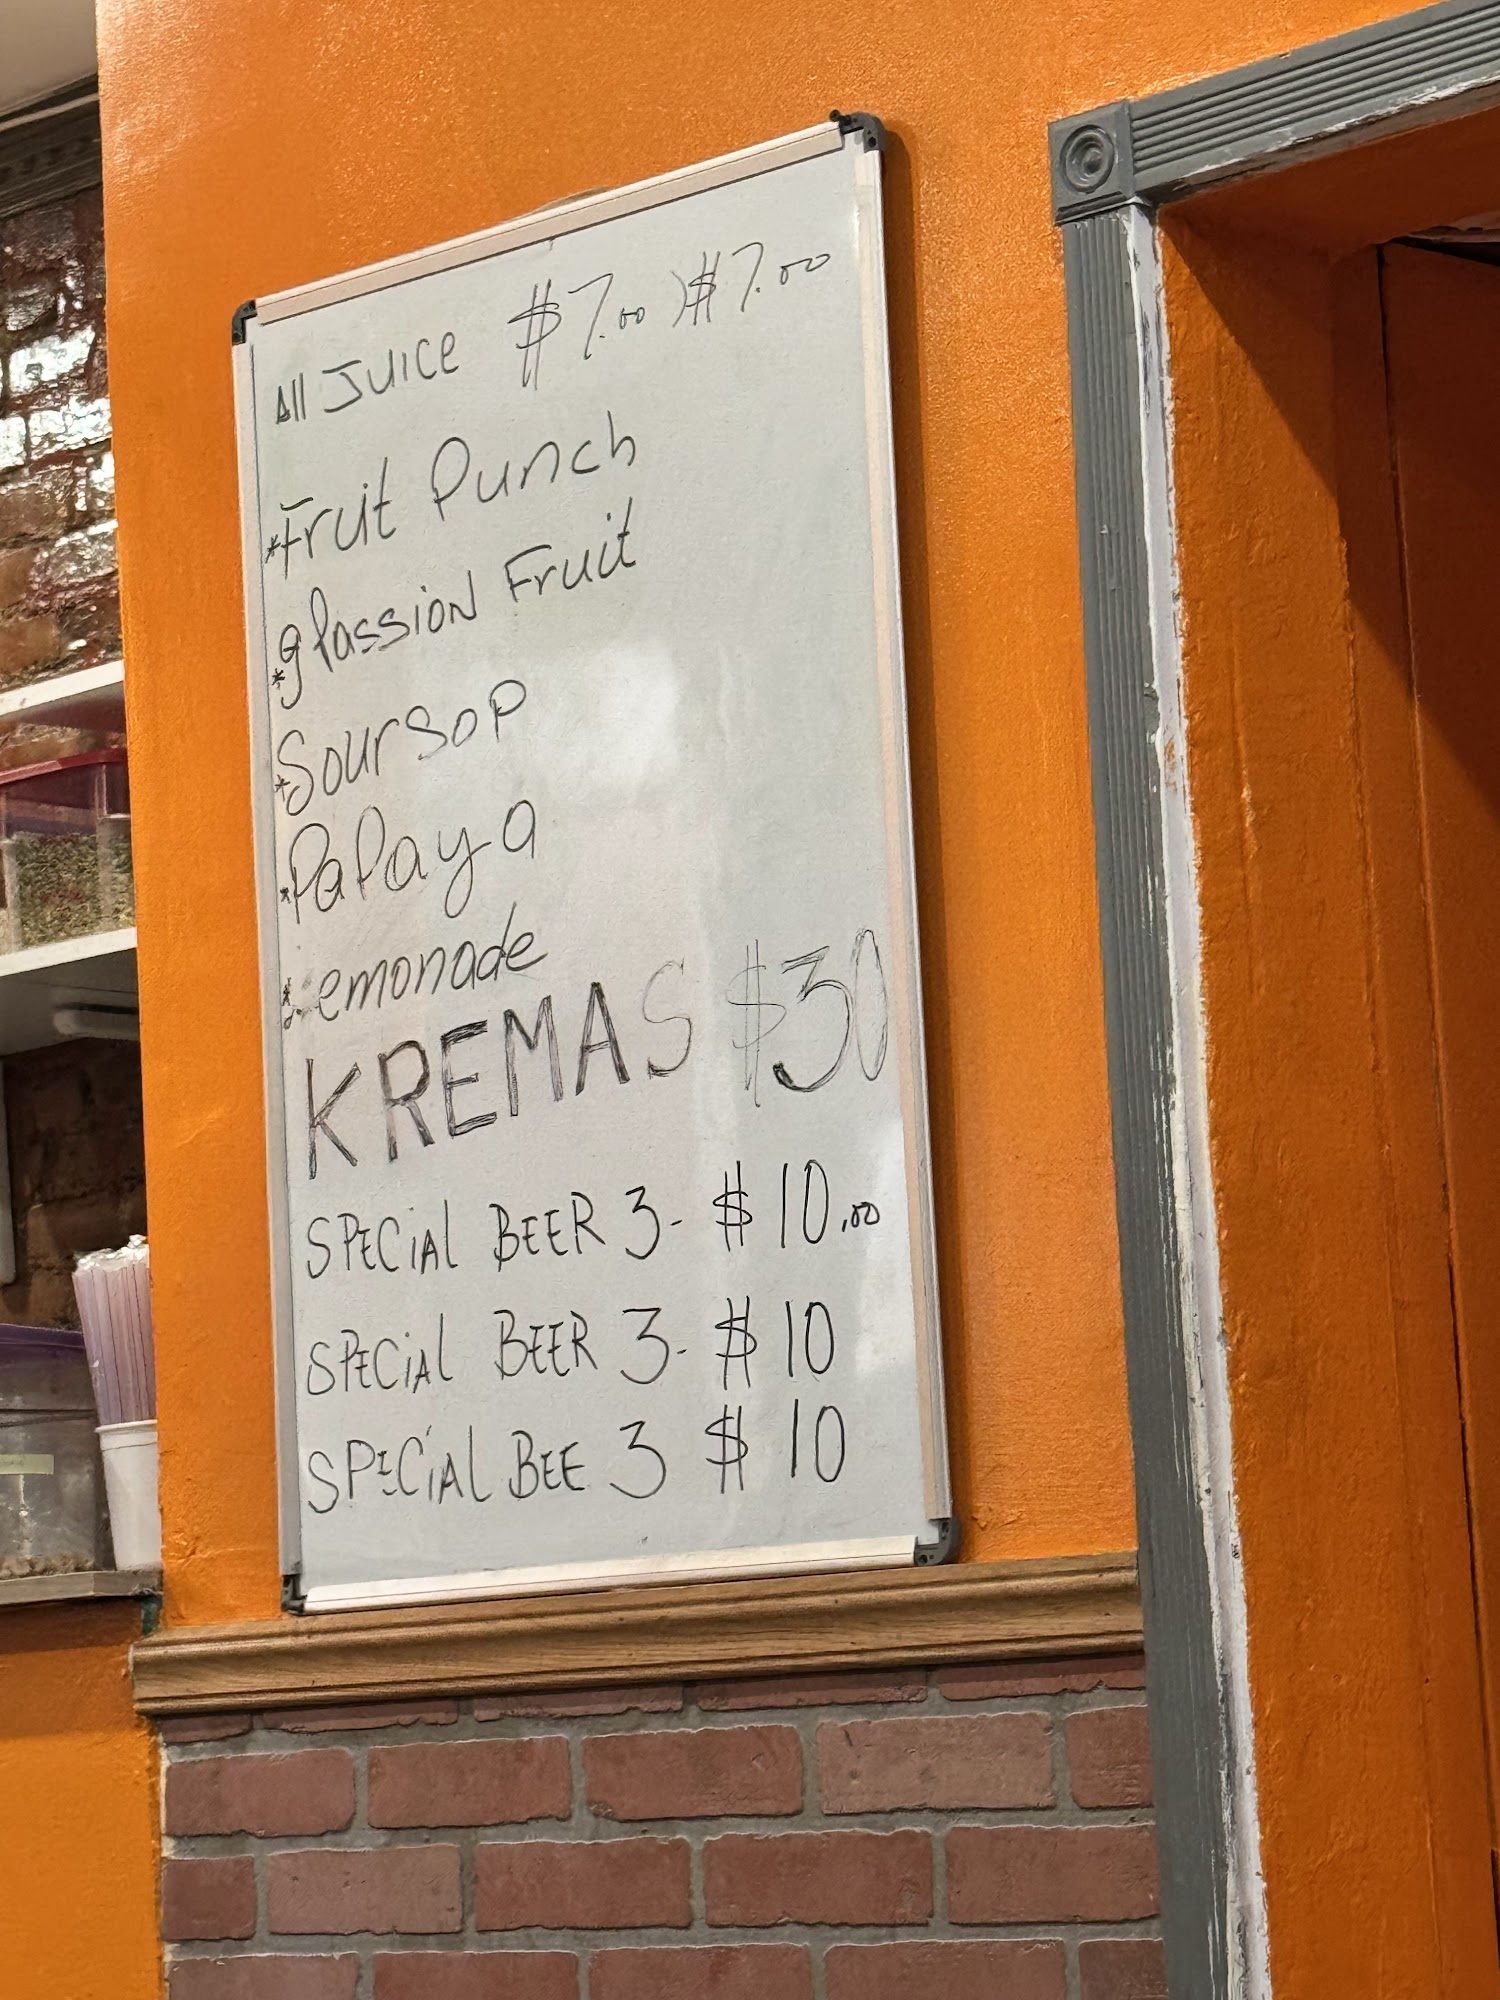 All JUICE $7.00 )$7.00
*Fruit Punch
*glassion Fruit
*SourSoP
*PaPaya
*Lemonade
KREMAS $30
SPECiAL BEER 3- $10.00
SPECiAL BEER 3- $10
SPECiAL BEE 3 $10